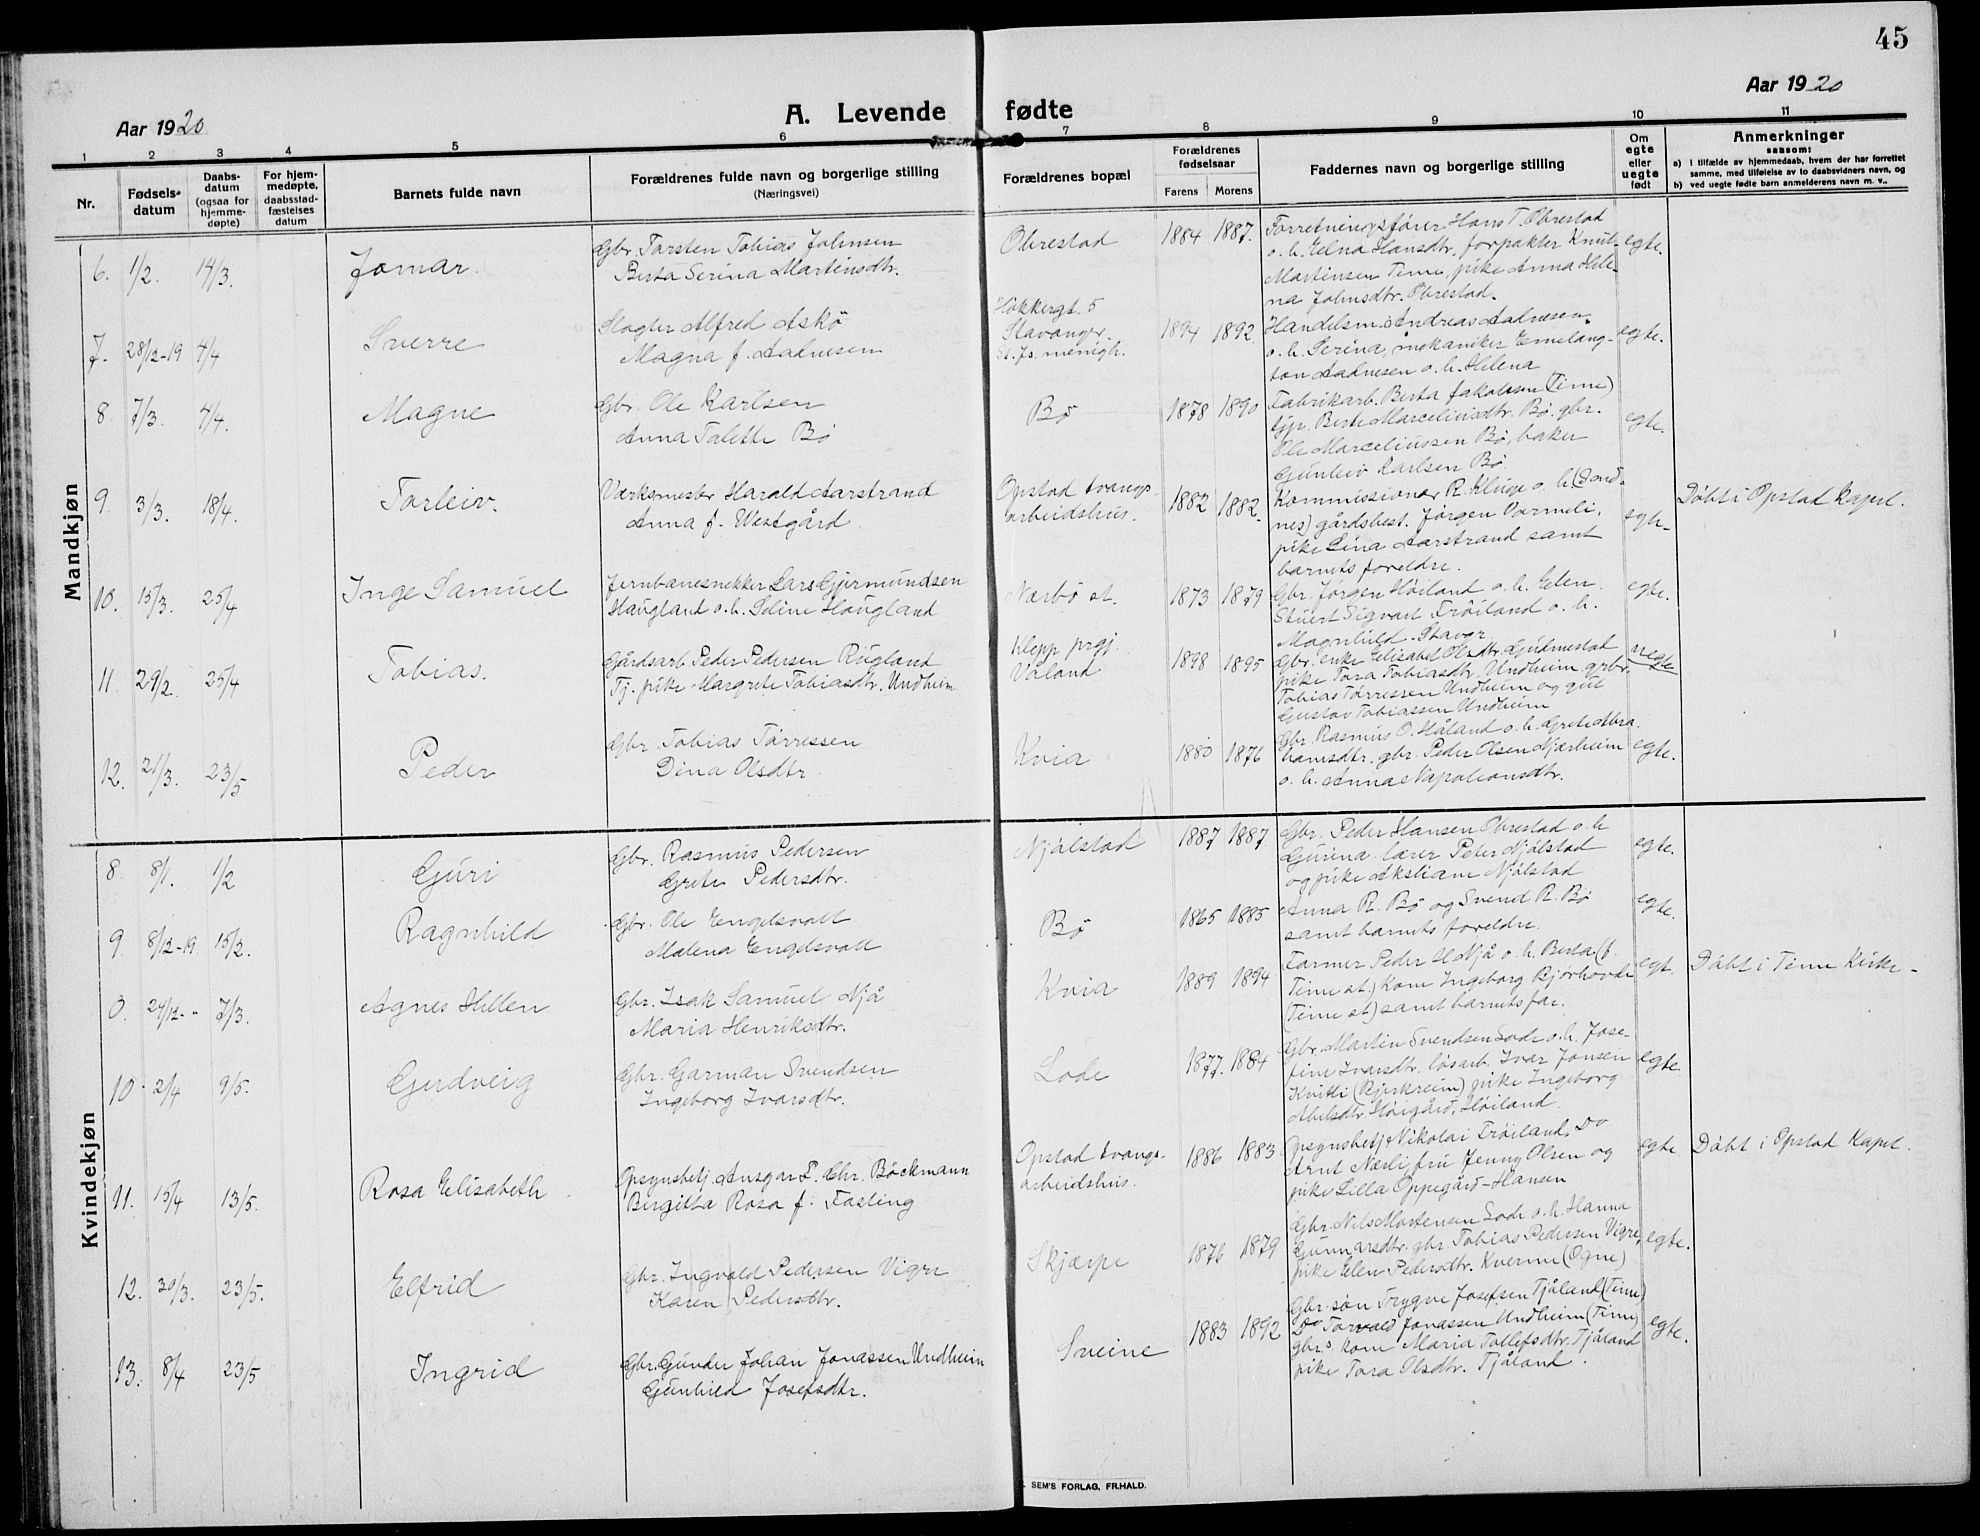 45
Aar 1920
A. Levende fødte
Aar 1920
1 2 3 4 5 6 7 8 9 10 11
Nr.
Fødsels-
datum
Daabs-
datum
(ogsaa for
hjemme-
døpte)
For hjem-
medøpte,
daabsstad-
fæstelses
datum
Barnets fulde navn
Forældrenes fulde navn og borgerlige stilling
(Næringsvei)
Forældrenes bopæl
Forældrenes
fødselsaar
Farens Morens
Faddernes navn og borgerlige stilling
Om
egte
eller
uegte
født
Anmerkninger
saasom:
a) I tilfælde av hjemmedaab, hvem der har forrettet
samme, med tilføielse av to daabsvidners navn, og
b) ved uegte fødte barn anmelderens navn m. v..
Mandkjøn
6. 1/2. 14/3. Jomar.
Gbr. Torsten Tobias Johnsen
Berta Serina Martinsdtr.
Obrestad
1884 1887.
Forretningsfører Hans T. Obrestad
o. h. Elna Hansdtr, forpakter Knut
Martinsen Time, pike Anna Hele-
na Johnsdtr. Obrestad.
egte.
7. 28/12-19 4/4 Sverre
Slagter Alfred Askö
Magna f. Aadnesen
Hökkergt. 5
Stavanger.
St. Js. menigh.
1894 1892.
Handelsm. Andreas Aadnesen
o. h. Serina, mekaniker
Aadnesen o. h. Helena
egte.
8. 7/3. 4/4. Magne
Gbr. Ole Karlsen
Anna Talette Bö
Bö
1878 1890
Fabrikarb. Berta Jakobsen (Time)
Marceliusdtr. Bö. gbr.
Ole Marceliussen Bö, baker
Gunleiv Karlsen Bö
egte.
9. 3/3. 18/4. Torleiv.
Værksmester Harald Aarstrand
Anna f. Westgård
Opstad tvangs-
arbeidshus.
1882 1882.
Kommissionær R. Kluge o. h. (Sand-
nes) gårdsbest. Jørgen Varmeli,
pike Lina Aarstrand samt
barnets foreldre.
egte
Döbt i Opstad kapel.
10. 15/3. 25/4 Inge Samuel
Jernbanesnekker Lars Gjermundsen
Haugland o. h. Seline Haugland
Nærbö st.
1873 1879
Gbr. Jørgen Höiland o. h. Elen
Stuert Sigvart Tröiland o. h.
Magnhild. Stavgr.
egte.
11. 29/2. 25/4 Tobias.
Gårdsarb. Peder Pedersen Rugland
Tj. pike Margrete Tobiasdtr. Undheim
Klepp prgj.
Våland
1898 1895
Gbr. enke Elisabet Olsdtr. Gudmestad
pike Tora Tobiasdtr. Undheim. gbr.
Tobias Törressen Undheim og gut
Gustav Tobiassen Undheim
uegte
12. 21/3. 23/5 Peder
Gbr. Tobias Törressen
Dina Olsdtr
Kvia
1880 1876
Gbr. Rasmus O. Håland o. h. Grete Abra
hamsdtr. gbr. Peder Olsen Njærheim
o. h. Anna Napoleonsdtr.
egte.
Kvindekjøn
8. 8/1. 1/2 Guri
Gbr. Rasmus Pedersen
Grete Pedersdtr.
Njålstad
1887 1887
Gbr. Peder Hansen Obrestad o. h
Gurina. lærer Peter Njålstad
og pike Aksliane Njålstad
egte.
9. 8/12-19 15/3. Ragnhild
Gbr. Ole Engelsvatt
Malena Engelsvatt
Bö
1865 1885
Anna R. Bö og Svend R. Bö
samt barnets foreldre.
egte.
0. 24/12- " 7/3. Agnes Hellen
Gbr. Isak Samuel Njå
Maria Henriksdtr.
Kvia
1889 1894
Farmer Peder H Njå o. h. Berta (f.
Time st.) kom Ingeborg Bjorhovde
(Time st) samt barnets far.
egt.
Döbt i Time Kirke -
10. 2/4 9/5. Gudveig
Gbr. Garman Svendsen
Ingeborg Ivarsdtr.
Lode
1877. 1884
Gbr. Martin Svendsen Lode o. h. Jose-
fine Ivarsdtr. løsarb. Ivar Jonsen
Kvitli (Bjerkreim) pike Ingeborg
Abelsdtr. Höigård, Höiland.
egte
11. 15/4 13/5. Rosa Elisabeth
Opsynsbetj. Ansgar P. Chr. Böckmann
Birgitta Rosa f. Fasting
Opstad tvangs-
arbeidshus.
1886 1883
Opsynsbetj Nikolai Tröiland, Do
Arnt Nærli, fru Jenny Olsen og
pike Lilla Oppegård-Hansen
egte
Döbt i Opstad kapel.
12. 30/3. 23/5. Elfrid
Gbr. Ingvald Pedersen Vigre
Karen Pedersdtr.
Skjærpe
1876 1879
Gbr. Nils Mortensen Lode o. h. Hanna
Gunnarsdtr. gbr. Tobias Pedersen Vigre,
pike Elen Pedersdtr. Kverme (Ogne)
egte.
13. 8/4 23/5 Ingrid
Gbr. Gunder Johan Jonassen Undheim
Gunhild Josefsdtr.
Sveine
1883 1892
Gbr. søn Trygve Josefsen Tjåland (Time)
Do Torvald Jonassen Undheim (Time)
gbr.s kom Maria Tollefsdtr. Tjåland
pike Tora Olsdtr. Tjåland.
egte.
SEM'S FORLAG, FR.HALD.